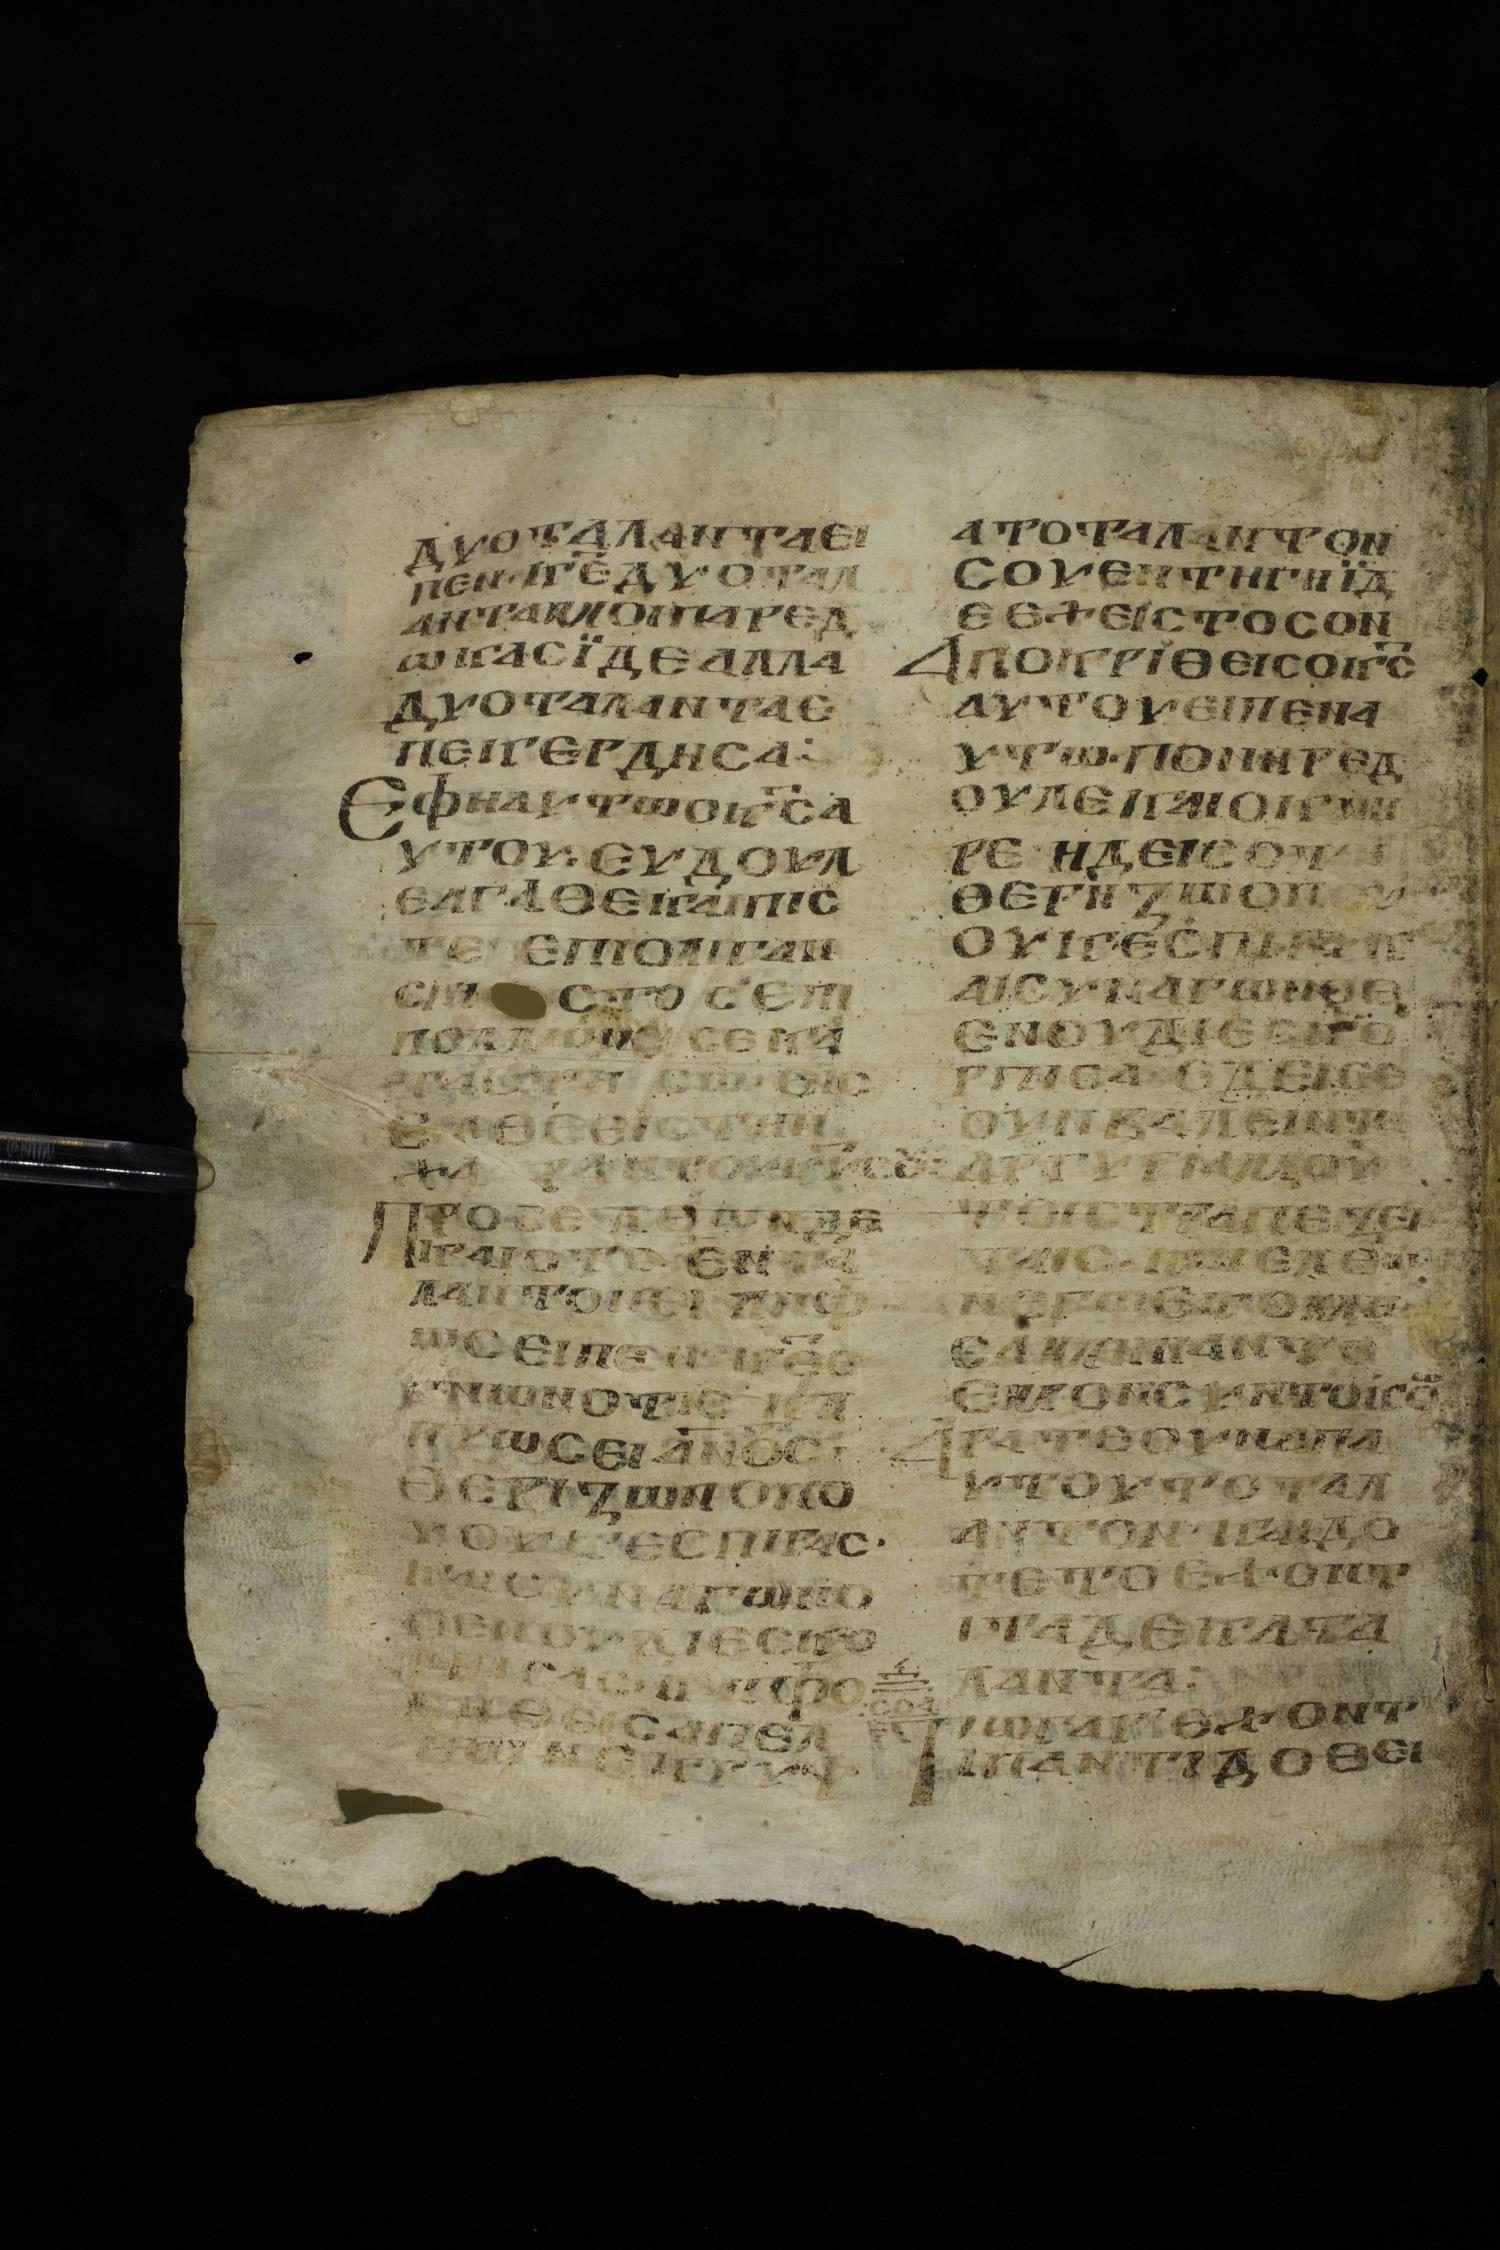 ΔΥΟΤΑΛΑΝΤΑΕΙ
ΠΕΝ·Κ̅Ε̅ΔΥΟΤΑΛ
ΑΝΤΑΜΟΙΠΑΡΕΔ
ΩΚΑΣΪΔΕΑΛΛΑ
ΔΥΟΤΑΛΑΝΤΑΕ
ΠΕΚΕΡΔΗΣΑ:
ΕΦΗΑΥΤΩΟΚ̅Σ̅Α
ΥΤΟΥ·ΕΥΔΟΥΛ
ΕΑΓΑΘΕΚΑΙΠΙΣ
ΤΕ ΕΠΙΟΛΙΓΑΗ
ΣΠΙΣΤΟΣΕΠΙ
ΠΟΛΛΩΝΣΕΚΑ
ΕΛΘΕΕΙΣΤΗΝ
ΧΑΡΑΝΤΟΥΚ̅Υ̅ΣΟΥ:
ΠΡΟΣΕΛΘΩΝΔΕ
ΚΑΙΟΤΟΕΝΤΑ
ΛΑΝΤΟΝΕΙΛΗΦ
ΩΣΕΙΠΕΝ·Κ̅Ε̅Ε
ΓΝΩΝΟΤΙΣ
ΗΡΩΣΕΙΑΝΟΣ·
ΘΕΡΙΖΩΝΟΠΟ
ΥΟΥΚΕΣΠΙΡΑΣ·
ΚΑΙΣΥΝΑΓΩΝΟ
ΘΕΝΟΥΔΙΕΣΚΟ
ΡΠΙΣΑΣ·ΚΑΙΦΟ
ΒΗΘΕΙΣΑΠΕΛ
ΘΩΝΕΚΡΥΨ
ΑΤΟΤΑΛΑΝΤΟΝ
ΣΟΥΕΝΤΗΓΗΪΔ
ΕΕΧΕΙΣΤΟΣΟΝ
ΑΠΟΚΡΙΘΕΙΣΟΚ̅Σ̅
ΑΥΤΟΥΕΙΠΕΝΑ
ΥΤΩ·ΠΟΝΗΡΕΔ
ΟΥΛΕΚΑΙΟΚΝΗ
ΡΕ ΗΔΕΙΣΟΤΙ
ΘΕΡΗΖΩΟΠΟΥ
ΟΥΚΕΣΠΙΡΑΚ
ΑΙΣΥΝΑΓΩΝΟΘ
ΕΝΟΥΔΙΕΣΚΟ
ΡΠΙΣΑ·ΕΔΕΙΣΕ
ΟΥΝΒΑΛΕΙΝΤΑ
ΑΡΓΥΡΙΑΜΟΥ
ΤΟΙΣΤΡΑΠΕΖΕΙ
ΤΑΙΣ·ΚΑΙΕΛΘΩ
ΝΕΓΩΕΚΟΜΗ
ΣΑΜΗΝΑΝΤΟ
ΕΜΟΝΣΥΝΤΟΚΩ
ΑΡΑΤΕΟΥΝΑΠΑ
ΥΤΟΥΤΟΤΑΛ
ΑΝΤΟΝ·ΚΑΙΔΟ
ΤΕΤΟΕΧΟΝΤ
ΙΤΑΔΕΚΑΤΑ
ΛΑΝΤΑ:
ΣΟΑ
ΤΩΓΑΡΕΧΟΝΤ
ΙΠΑΝΤΙΔΟΘΕΙ